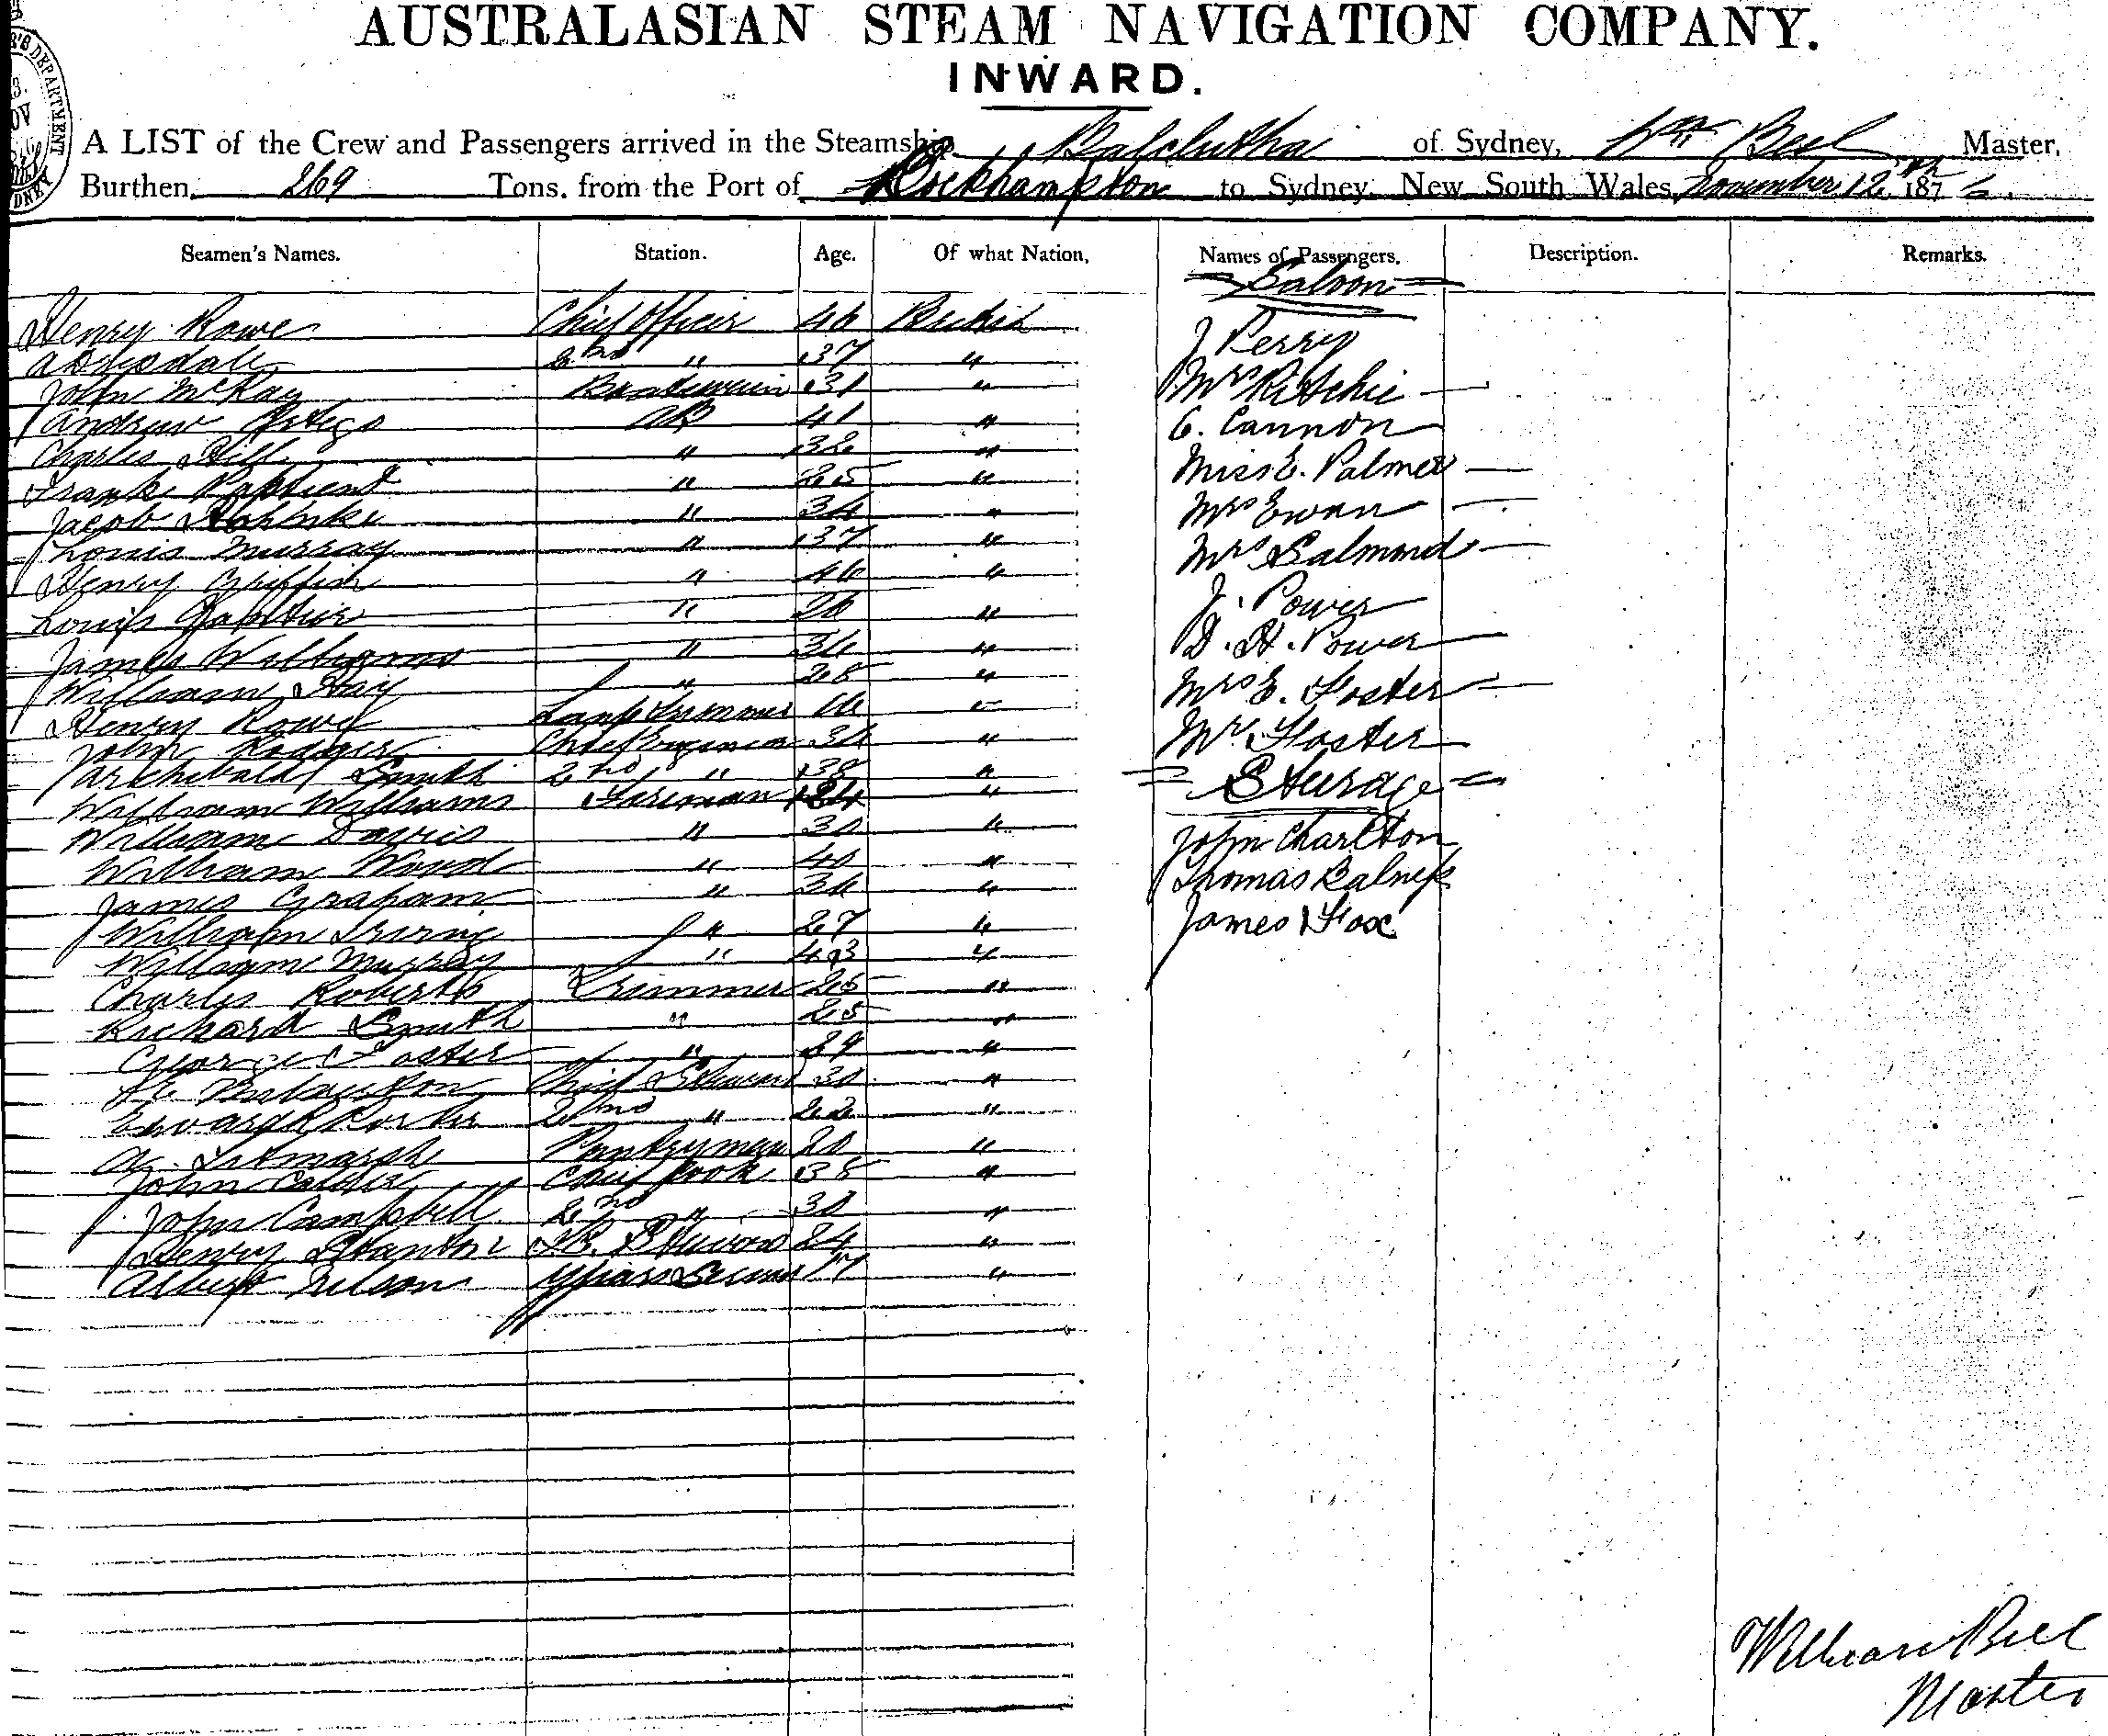 AUSTRALASIAN STEAM NAVIGATION COMPANY.
INWARD.
A LIST of the Crew and Passengers arrived in the Steamship Balclutha of Sydney, Wm Beel Master,
Burthen 269 Tons, from the Port of Rockhampton to Sydney, New South Wales, November 12th 1876
Seamen's Names. Station. Age. Of what Nation, Names of Passengers. Description. Remarks.
Saloon
Henry Rowe Chief Officer 46 British
2nd " 37 "
John McKay Boatswain 31 "
Andrew AB 41 "
Charles Hill " 32 "
Frank " 25 "
Jacob " 34 "
Louis Murray " 37 "
Henry Griffith " 46 "
Louis " 26 "
James Williams " 34 "
William Hay " 28 "
Henry Rowe Lamptrimmer 16 "
John Rodger Chief Engineer 34 "
Archibald Smith 2nd " 38 "
William Williams Fireman 24 "
William Davis " 30 "
William Wood " 40 "
James Graham " 34 "
William Irvine " 27 "
William Murray " 43 "
Charles Roberts Trimmer 25 "
Richard Smith " 25 "
George Foster " 39 "
Chief Steward 30 "
Edward 2nd " 22 "
A. Titmarsh Pantryman 20 "
John Calder Chief Cook 38 "
John Campbell 2nd " 30 "
Henry Stanton 24 "
Albert Nelson 17 "
J Perry
Mrs Ritchie
C. Cannon
Miss E. Palmer
Mrs Ewan
Mrs Salmond
J. Power
D. H. Power
Mrs E. Foster
Mr Foster
Steerage
John Charlton
Thomas
James Fox
William Beel
Master